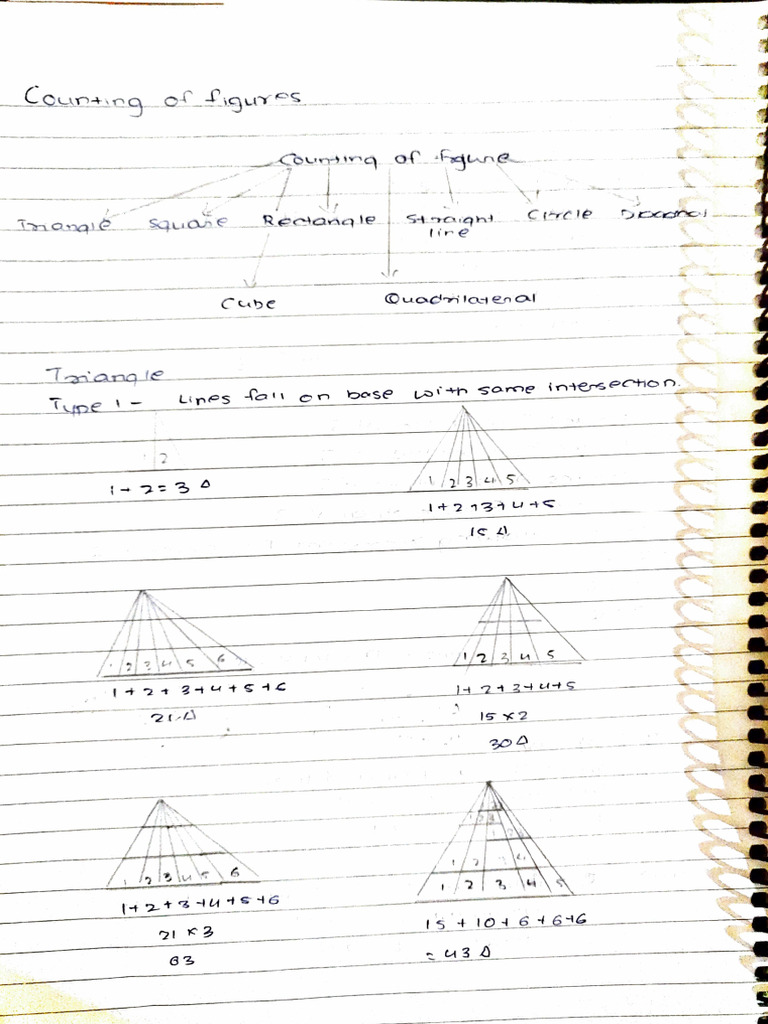 Counting of figures
Counting of figure
Triangle Square Rectangle Straight line Circle
Cube Quadrilateral
Triangle
Type 1 - Lines fall on base with same intersection.
2
1 + 2 = 3 Δ
1 2 3 4 5
1 + 2 + 3 + 4 + 5
15 Δ
1 2 3 4 5 6
1 + 2 + 3 + 4 + 5 + 6
21 Δ
1 2 3 4 5
1 + 2 + 3 + 4 + 5
15 × 2
30 Δ
1 2 3 4 5 6
1 + 2 + 3 + 4 + 5 + 6
21 × 3
63
1 2 3
1 2 3 4
1 2 3 4 5
15 + 10 + 6 + 6 + 6
= 43 Δ